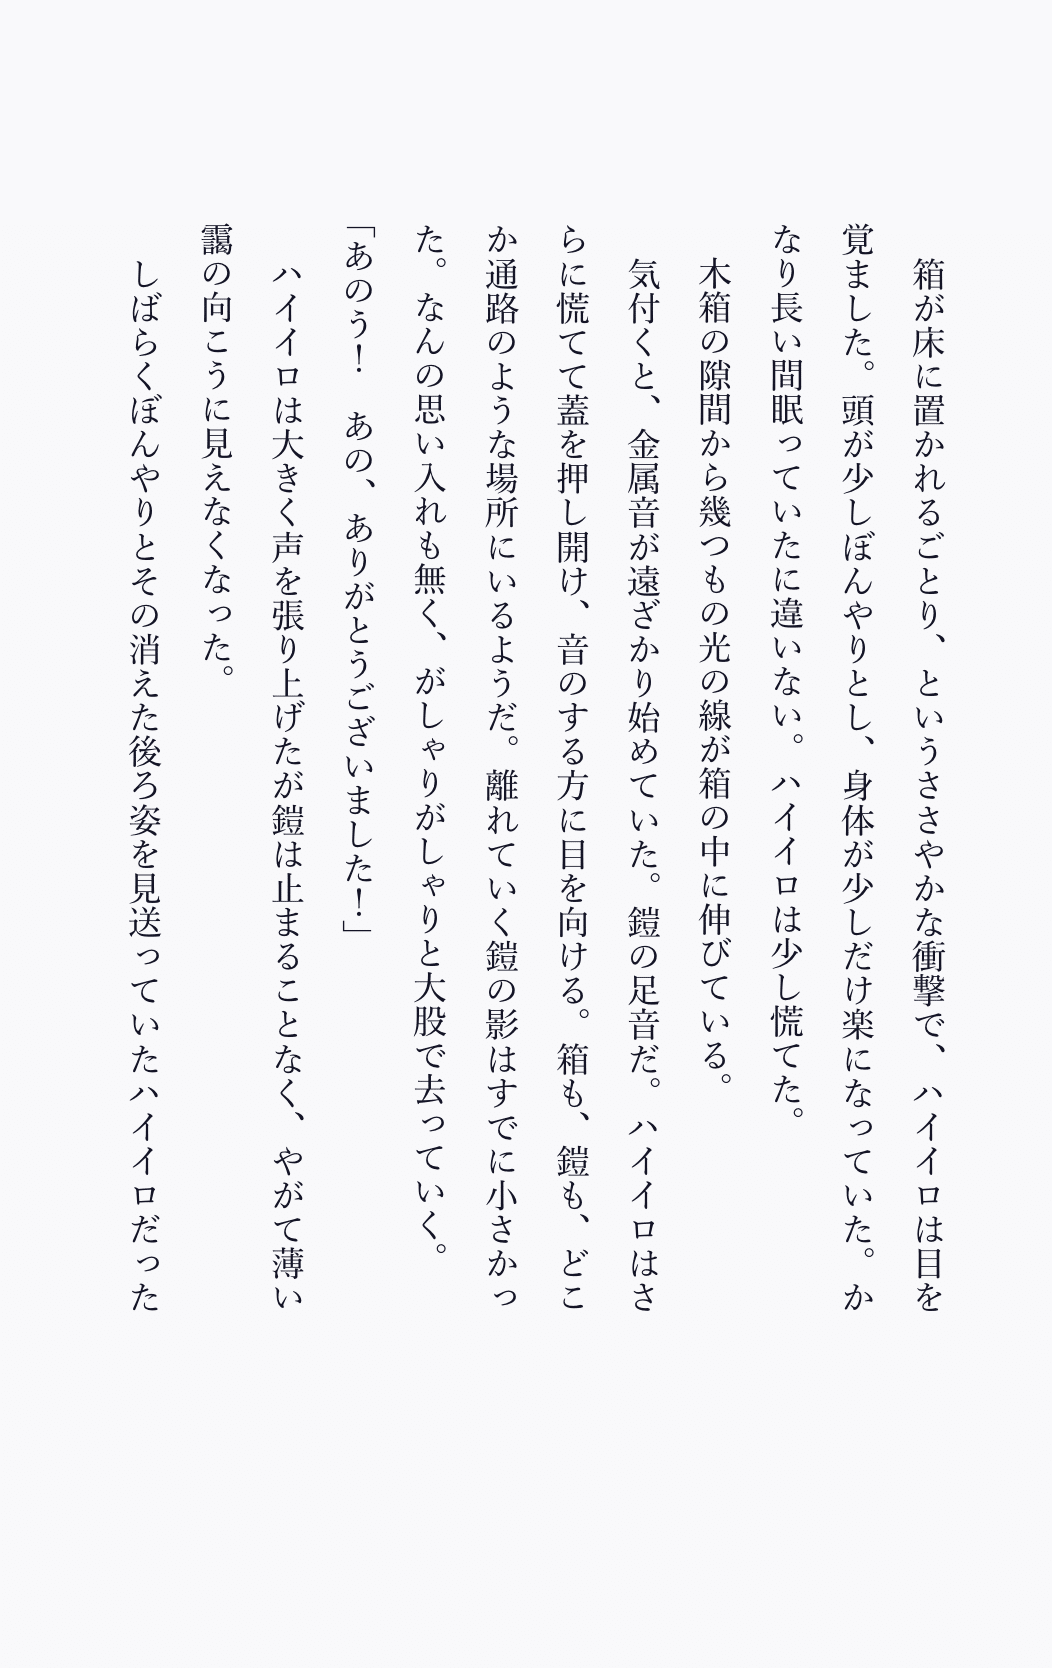 箱が床に置かれるごとり、というささやかな衝撃で、ハイイロは目を
覚ました。頭が少しぼんやりとし、身体が少しだけ楽になっていた。か
なり長い間眠っていたに違いない。ハイイロは少し慌てた。
　木箱の隙間から幾つもの光の線が箱の中に伸びている。
　気付くと、金属音が遠ざかり始めていた。鎧の足音だ。ハイイロはさ
らに慌てて蓋を押し開け、音のする方に目を向ける。箱も、鎧も、どこ
か通路のような場所にいるようだ。離れていく鎧の影はすでに小さかっ
た。なんの思い入れも無く、がしゃりがしゃりと大股で去っていく。
「あのう！　あの、ありがとうございました！」
　ハイイロは大きく声を張り上げたが鎧は止まることなく、やがて薄い
靄の向こうに見えなくなった。
　しばらくぼんやりとその消えた後ろ姿を見送っていたハイイロだった